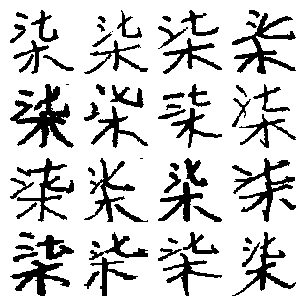 柒柒柒柒
柒柒柒柒
柒柒柒柒
柒柒柒柒